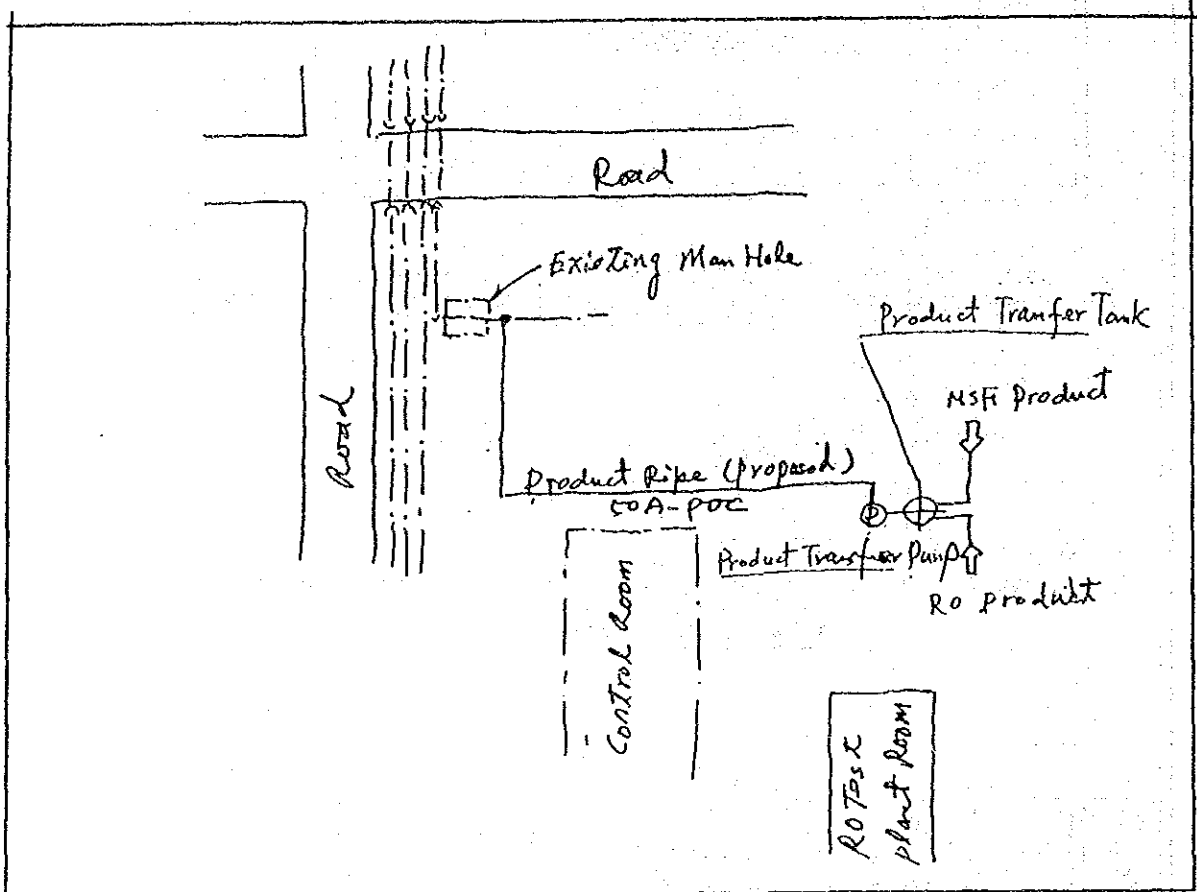 Road
Existing Man Hole
Product Tranfer Tank
MSF Product
Road
Product Pipe (proposed)
50A-PVC
P
Product Transfer Pump
RO Product
Control Room
RO Test
plant Room